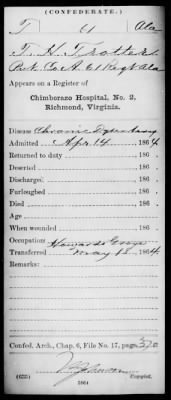 (CONFEDERATE.)
T 61 Ala
T. H. Trotter
Pvt. Co. A. 61 Regt Ala
Appears on a Register of
Chimborazo Hospital, No. 2,
Richmond, Virginia.
Disease Chronic Dysentery
Admitted Apr 14, 1864
Returned to duty , 186 .
Deserted , 186 .
Discharged , 186 .
Furloughed , 186 .
Died , 186 .
Age
When wounded , 186 .
Occupation Howards Grove
Transferred May 12, 1864
Remarks:
Confed. Arch., Chap. 6, File No. 17, page
(635) Copyist.
1864